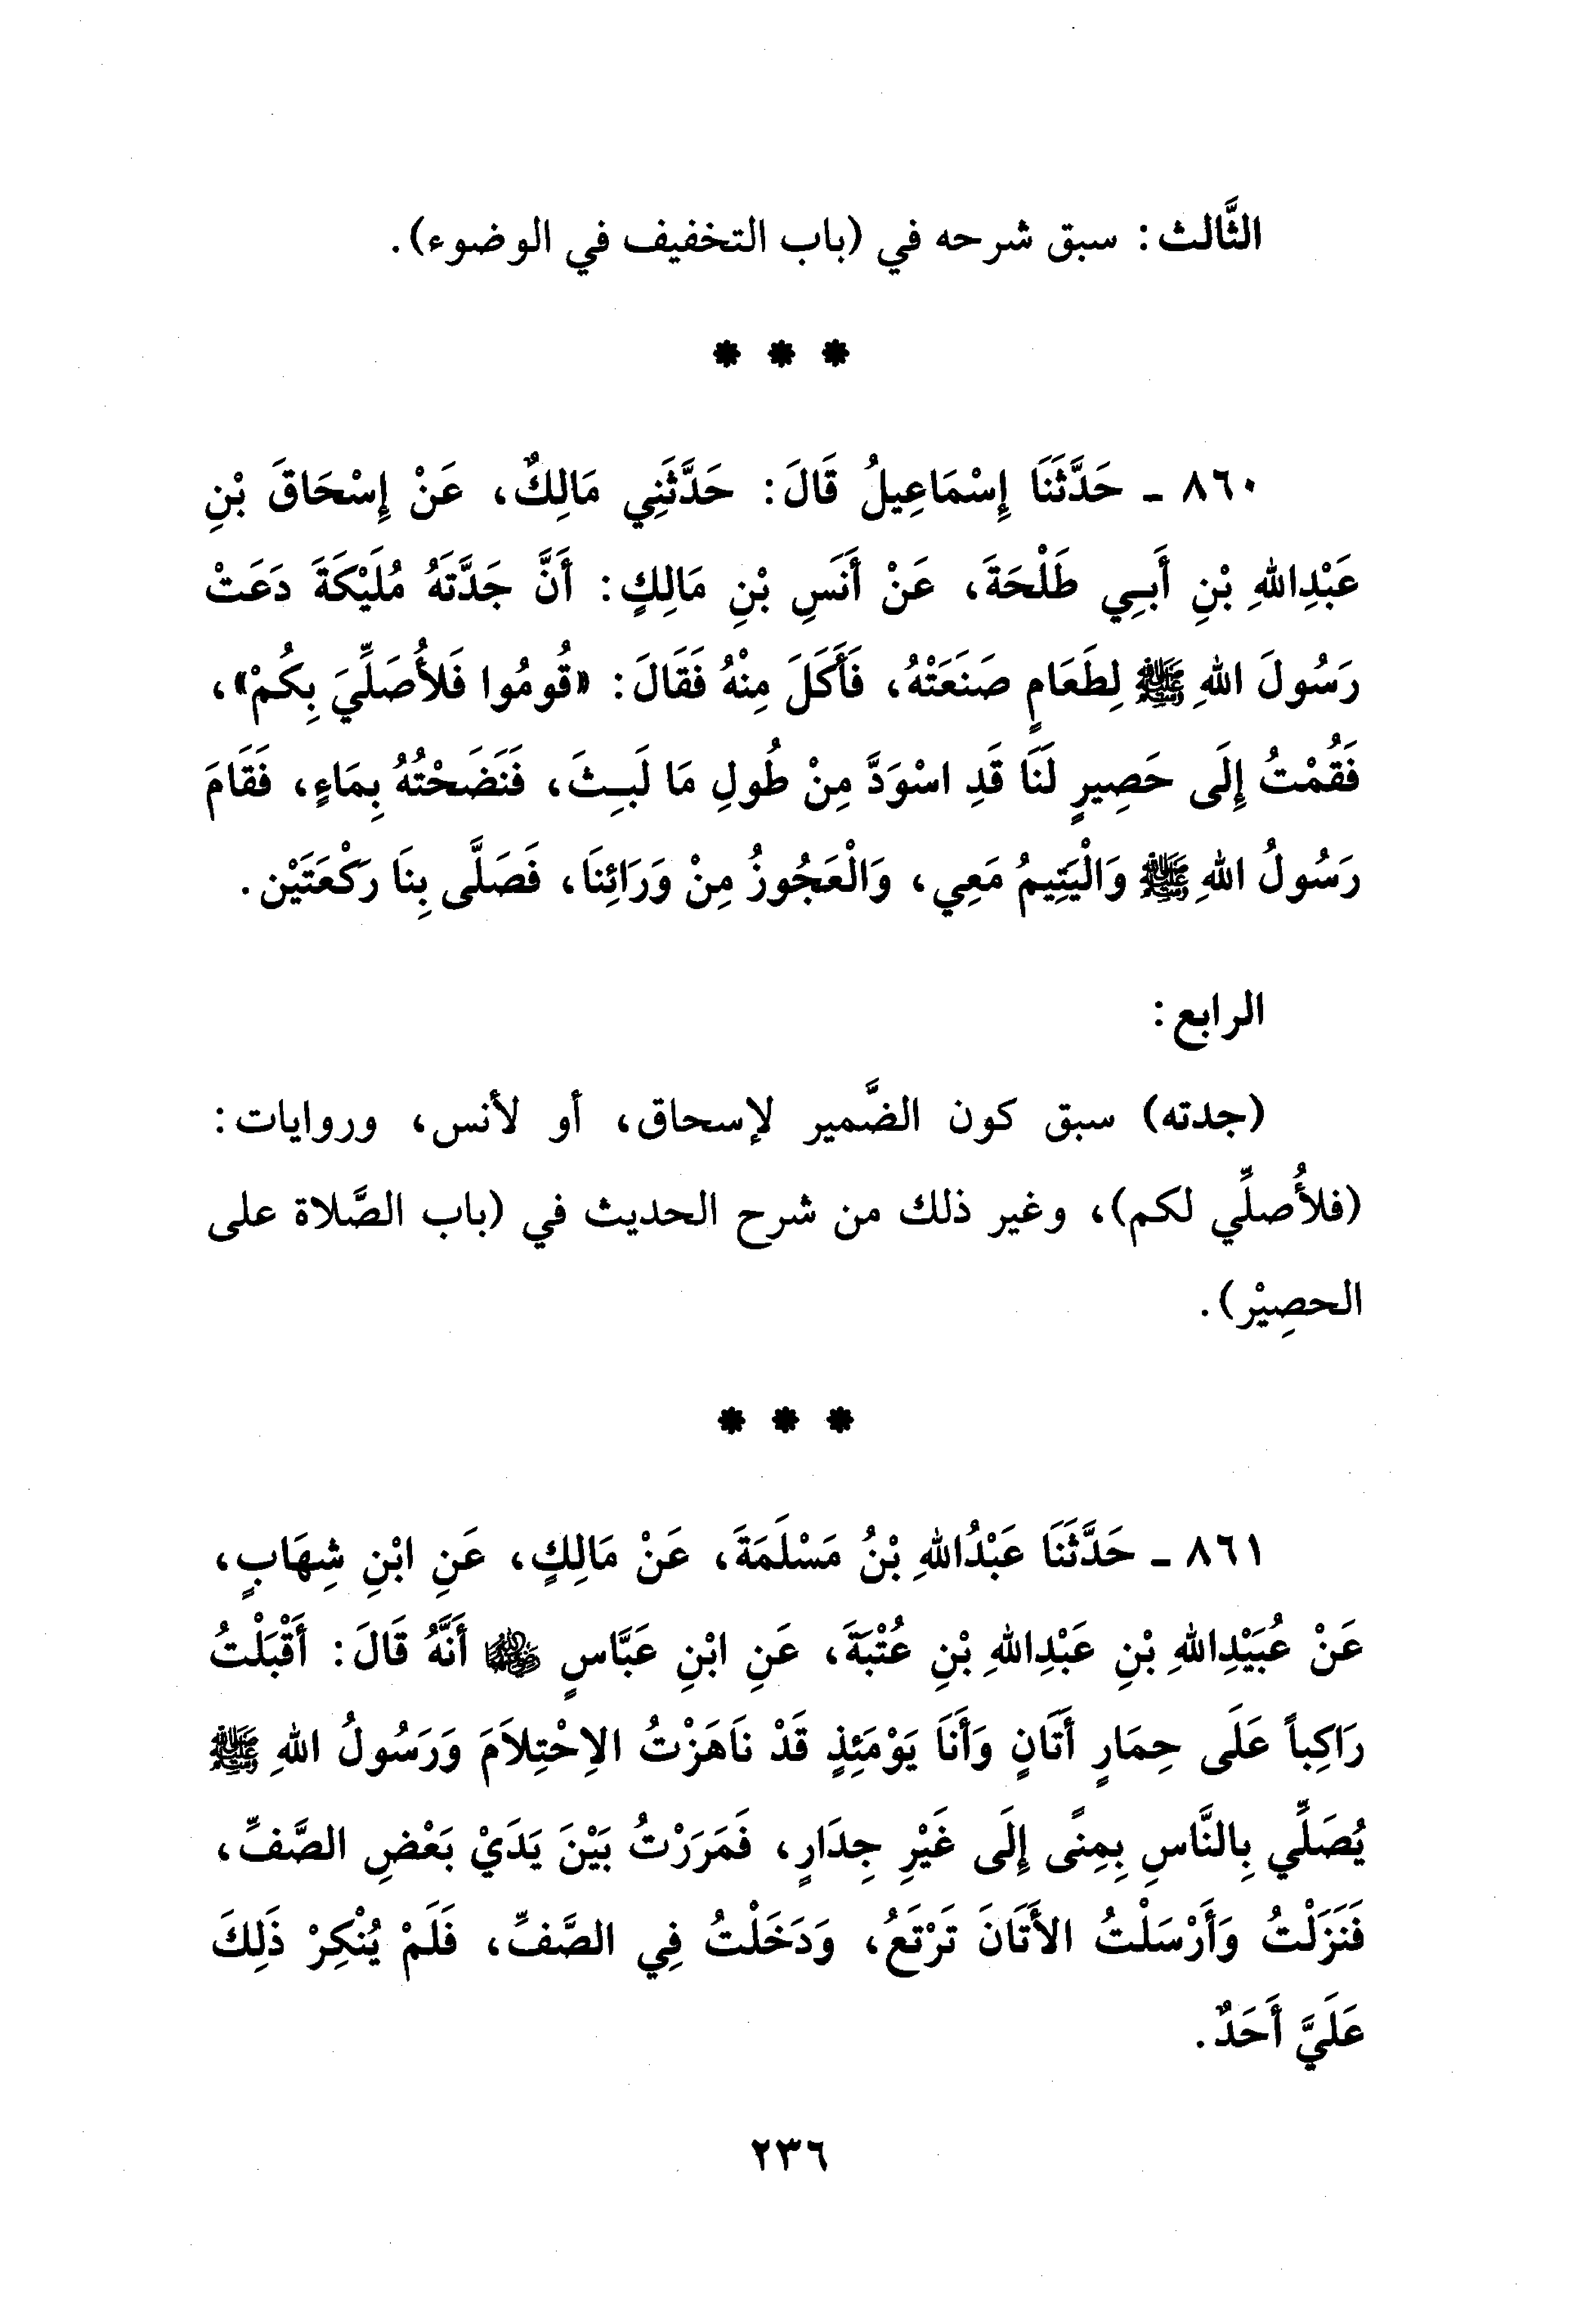 الثَّالث: سبق شرحه في (باب التخفيف في الوضوء).
* * *
٨٦٠ ـ حَدَّثَنَا إِسْمَاعِيلُ قَالَ: حَدَّثَنِي مَالِكٌ، عَنْ إِسْحَاقَ بْنِ
عَبْدِاللهِ بْنِ أَبِي طَلْحَةَ، عَنْ أَنَسِ بْنِ مَالِكٍ: أَنَّ جَدَّتَهُ مُلَيْكَةَ دَعَتْ
رَسُولَ اللهِ ﷺ لِطَعَامٍ صَنَعَتْهُ، فَأَكَلَ مِنْهُ فَقَالَ: «قُومُوا فَلأُصَلِّيَ بِكُمْ»،
فَقُمْتُ إِلَى حَصِيرٍ لَنَا قَدِ اسْوَدَّ مِنْ طُولِ مَا لَبِثَ، فَنَضَحْتُهُ بِمَاءٍ، فَقَامَ
رَسُولُ اللهِ ﷺ وَالْيَتِيمُ مَعِي، وَالْعَجُوزُ مِنْ وَرَائِنَا، فَصَلَّى بِنَا رَكْعَتَيْنِ.
الرابع:
(جدته) سبق كون الضَّمير لإسحاق، أو لأنس، وروايات:
(فلأُصلِّي لكم)، وغير ذلك من شرح الحديث في (باب الصَّلاة على
الحصِيْر).
* * *
٨٦١ ـ حَدَّثَنَا عَبْدُاللهِ بْنُ مَسْلَمَةَ، عَنْ مَالِكٍ، عَنِ ابْنِ شِهَابٍ،
عَنْ عُبَيْدِاللهِ بْنِ عَبْدِاللهِ بْنِ عُتْبَةَ، عَنِ ابْنِ عَبَّاسٍ ﵄ أَنَّهُ قَالَ: أَقْبَلْتُ
رَاكِباً عَلَى حِمَارٍ أَتَانٍ وَأَنَا يَوْمَئِذٍ قَدْ نَاهَزْتُ الاِحْتِلاَمَ وَرَسُولُ اللهِ ﷺ
يُصَلِّي بِالنَّاسِ بِمِنًى إِلَى غَيْرِ جِدَارٍ، فَمَرَرْتُ بَيْنَ يَدَيْ بَعْضِ الصَّفِّ،
فَنَزَلْتُ وَأَرْسَلْتُ الأَتَانَ تَرْتَعُ، وَدَخَلْتُ فِي الصَّفِّ، فَلَمْ يُنْكِرْ ذَلِكَ
عَلَيَّ أَحَدٌ.
٢٣٦